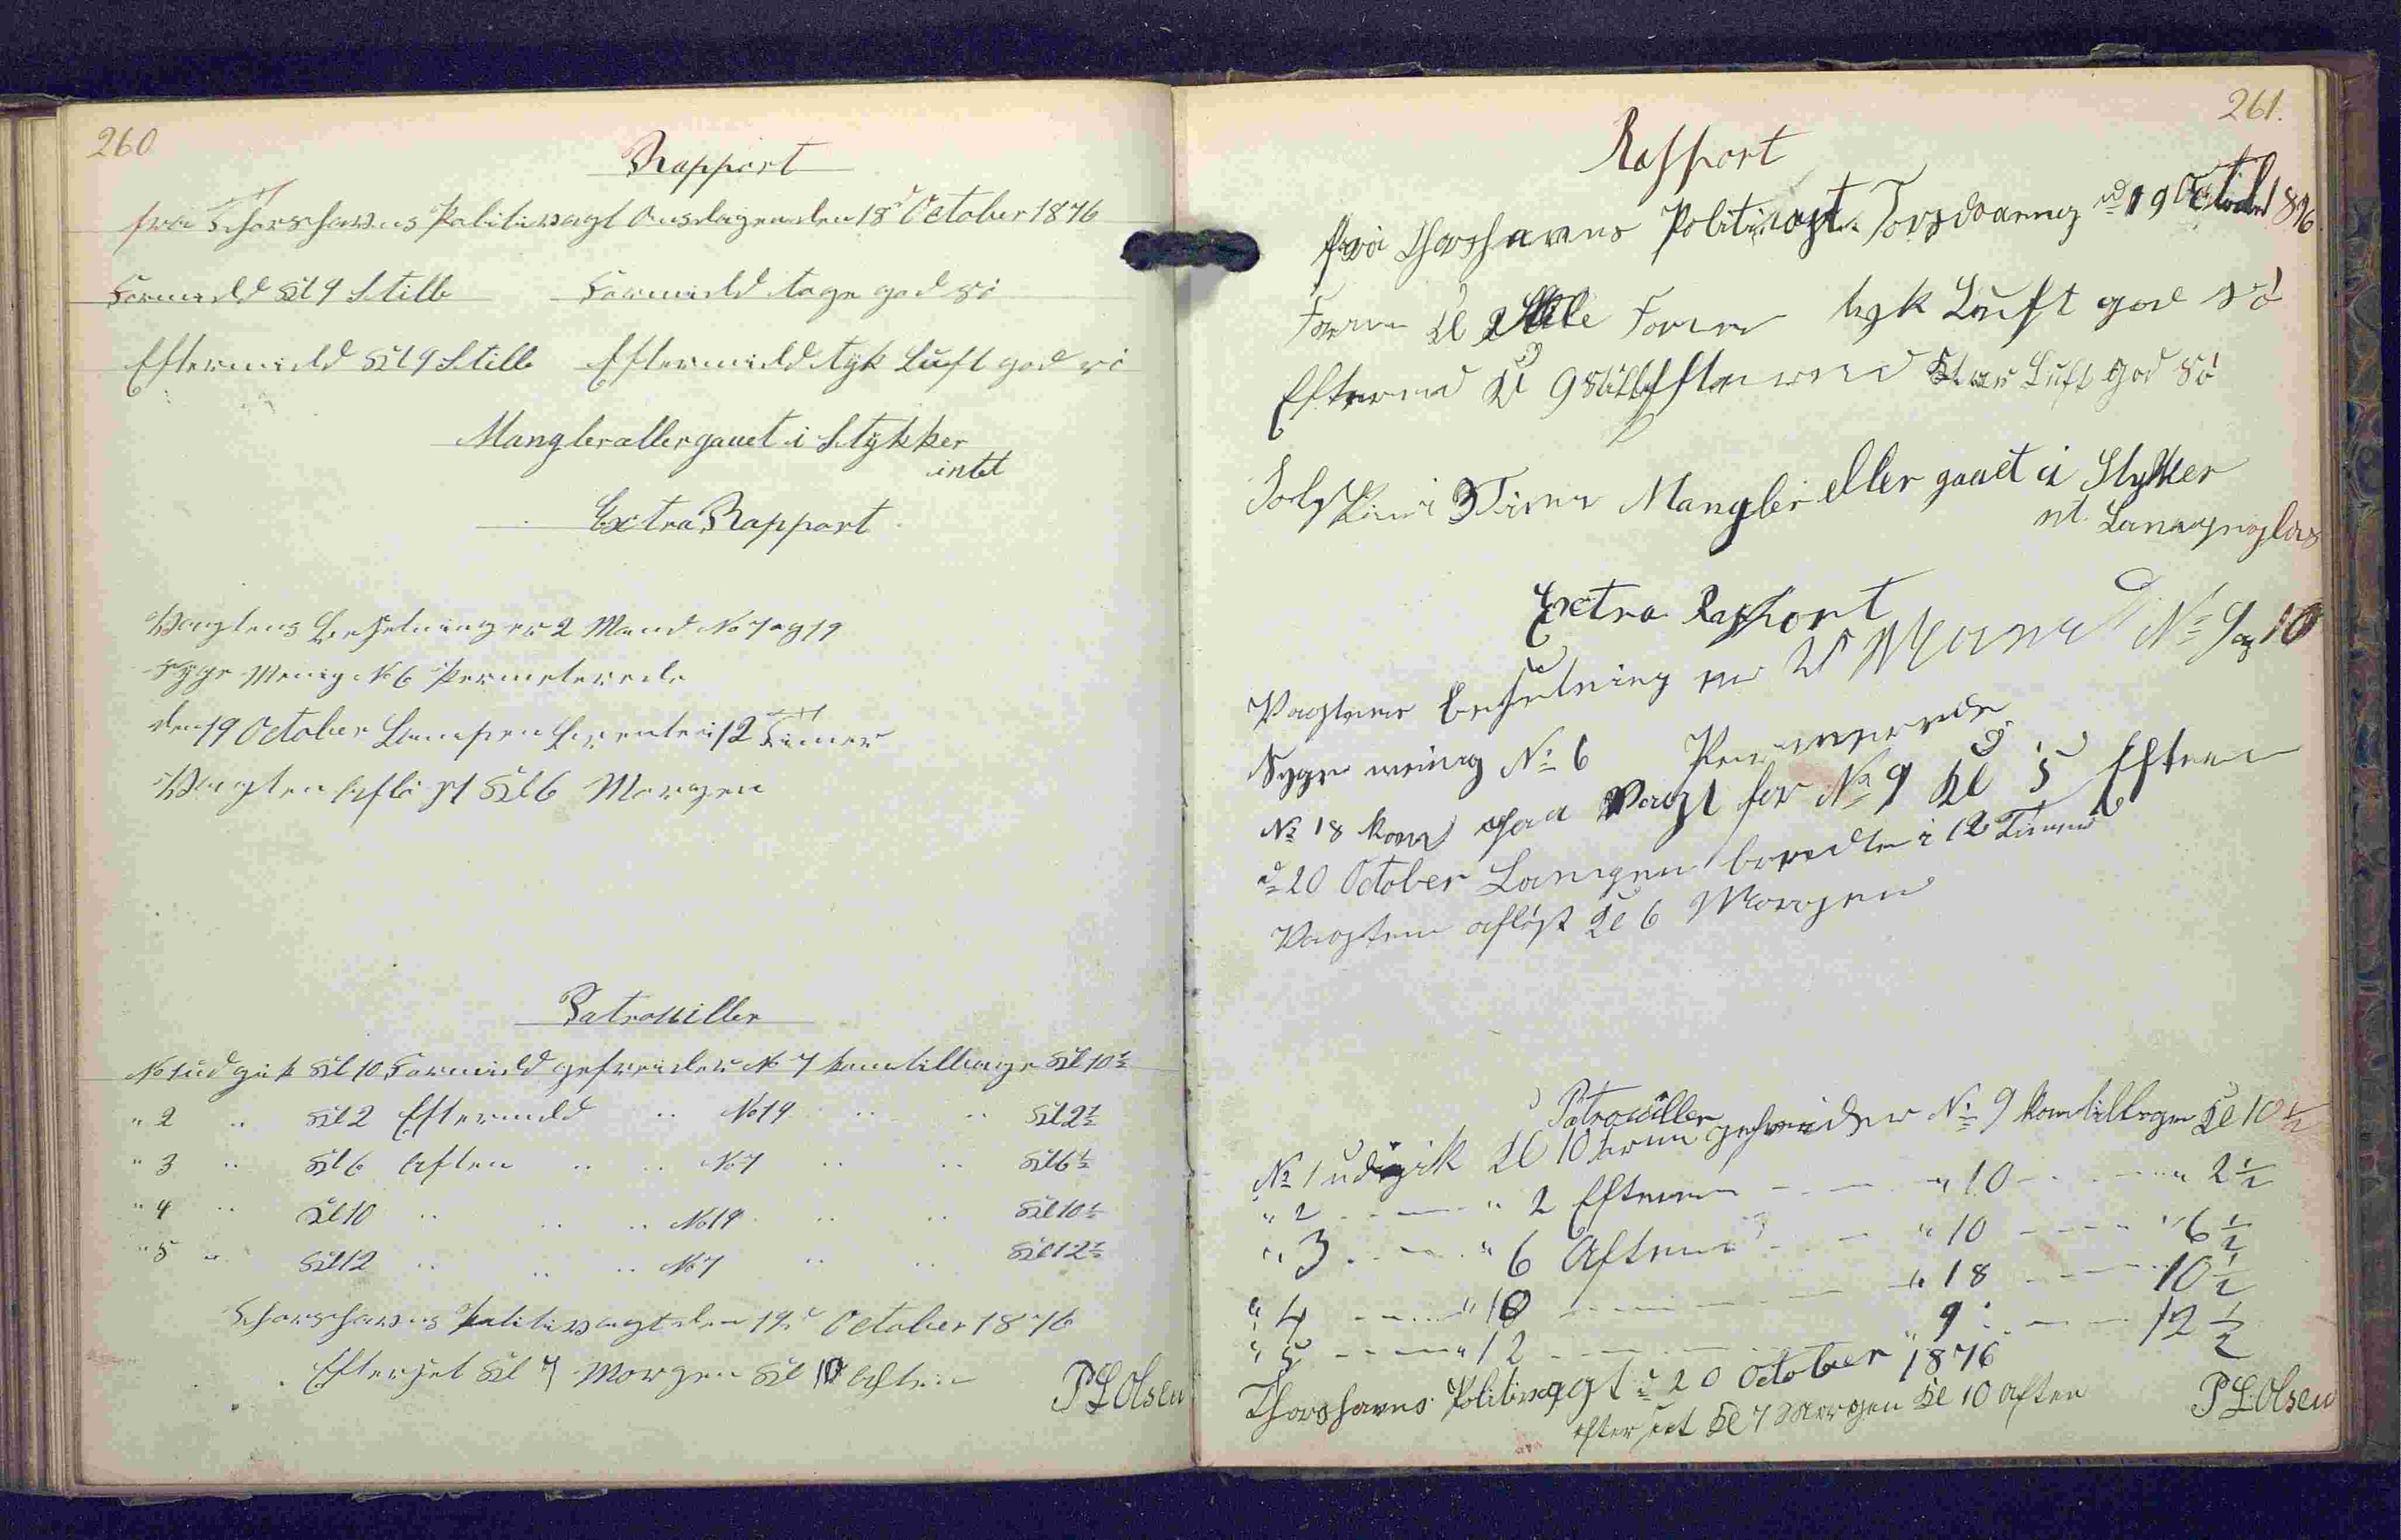 260
Rapport
fra Thorshavns Politivagt Onsdagen den 18d October 1876
Formidd Kl 9 Stille Formidd Taage god Sö
Eftermidd Kl 9 Stille Eftermidd tyk Luft god sö
Mangler eller gaaet i Stykker
intet
Extra Rapport
Vagtens Besetning er 2 Mand No 7 og 19
Syge Menig No 6 Permeterede
den 19 October Lampen brente i 12 Timer
Vagten aflöst Kl 6 Morgen
Patrouiller
No 1 ud gik Kl 10 Formidd gefreider No 7 kom tilbage Kl 10½
" 2 " Kl 2 Eftermidd " No 19 " " Kl 2½
" 3 " Kl 6 Aften " " No 7 " " Kl 6½
" 4 " Kl 10 " " " No 19 " " Kl 10½
" 5 " Kl 12 " " " No 7 " " Kl 12½
Thorshavns Politivagt den 19d October 1876
Efterset Kl 7 Morgen Kl 10 Aften P L Olsen
261.
Rapport
fra Thorshavns Politivagt Torsdaeng d 19 October 1876.
Form Kl 9 Stille Form tyk Luft god Sö
Efterm Kl 9 Stille Efterm Klar Luft god Sö
Solskin i 3 Timer Mangler eller gaaet i Stykker
et Lampeglas
Extra Rapport
Vagtens Besetning er 2 Mand No 9 og 10
Syge menig No 6
No 18 kom paa Vagt for No 9 Kl 5 Efterm
d 20 October Lampen brendte i 12 Timer
Vagten aflöst Kl 6 Morgen
Patrouiller
No 1 udgik Kl 10 form gefreider No 9 kom tilbage Kl 10½
" 2 " 2 Efterm " 10 " 2½
" 3 " 6 Aften " 10 " 6½
" 4 " 10 " 18 10½
" 5 " 12 " 9 12½
Thorshavns Politivagt d 20 October 1876
efterset Kl 7 Morgen Kl 10 aften P L Olsen